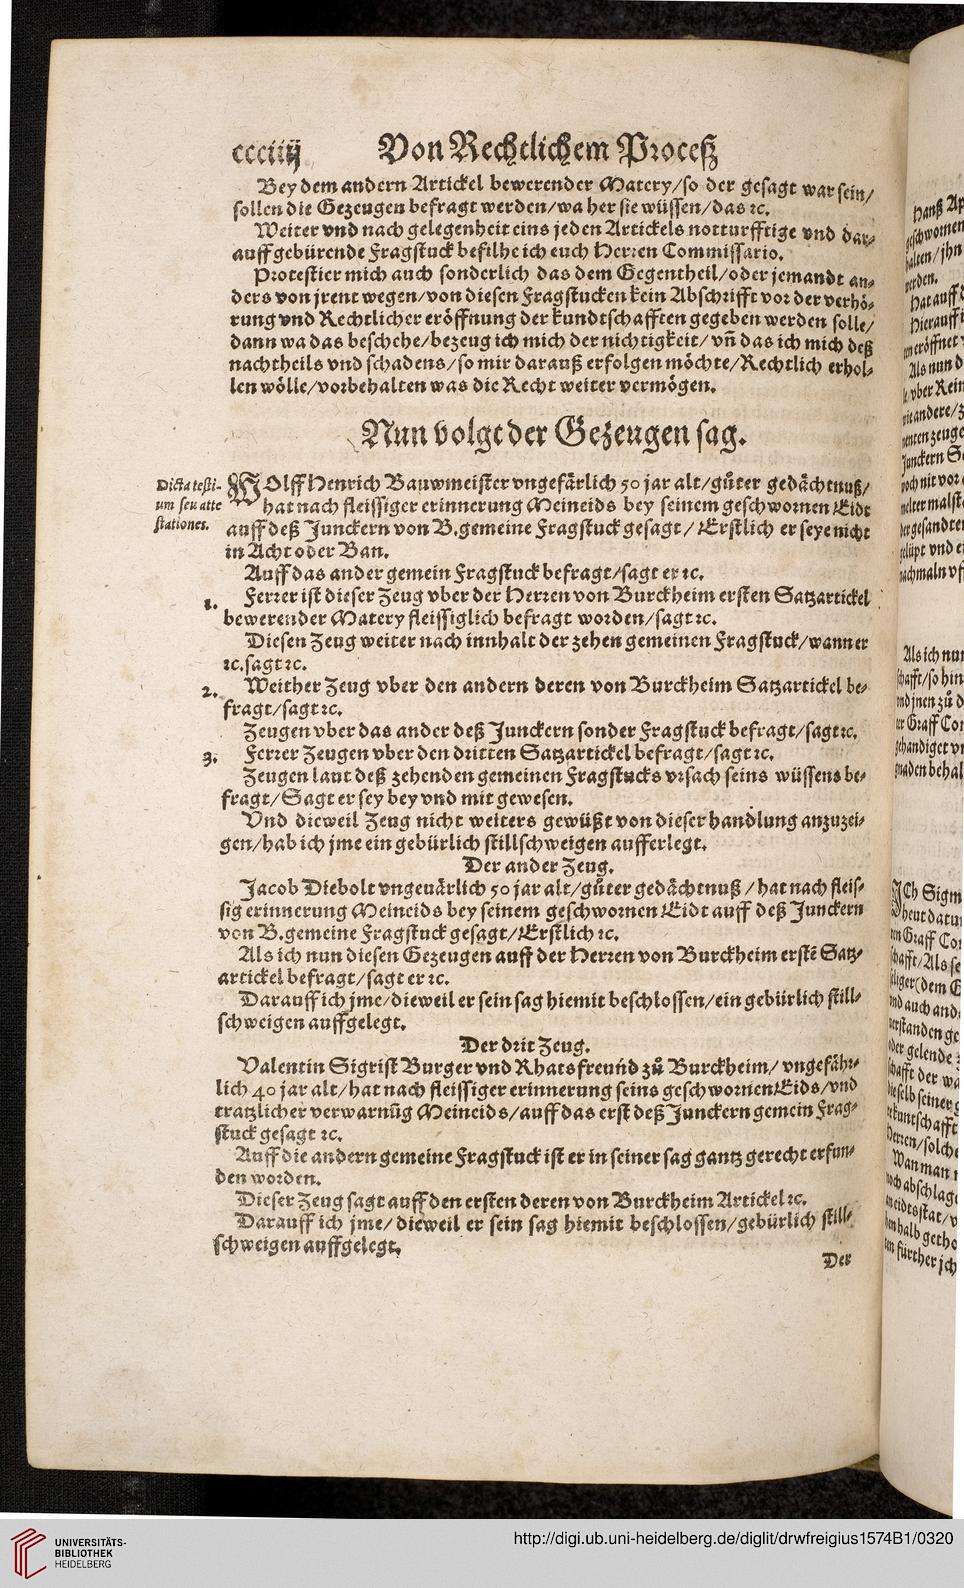 ccciiij Von Rechtlichem Proceß
Bey dem andern Artickel bewerender Matery/so der gesagt war sein/
sollen die Gezeugen befragt werden/wa her sie wüssen/das ꝛc.
Weiter vnd nach gelegenheit eins jeden Artickels notturfftige vnd dar-
auff gebürende Fragstuck befilhe ich euch Herren Commissario.
Protestier mich auch sonderlich das dem Gegentheil/oder jemandt an-
ders von jrent wegen/von diesen Fragstucken kein Abschrifft vor der verhö-
rung vnd Rechtlicher eröffnung der kundtschafften gegeben werden solle/
dann wa das beschehe/bezeug ich mich der nichtigkeit/vñ das ich mich deß
nachtheils vnd schadens/so mir darauß erfolgen möchte/Rechtlich erhol-
len wölle/vorbehalten was die Recht weiter vermögen.
Nun volgt der Gezeugen sag.
Dicta testi-
um seu atte
stationes.
WOlff Henrich Bauwmeister vngefärlich 50 jar alt/gůter gedächtnuß/
hat nach fleissiger erinnerung Meineids bey seinem geschwornen Eidt
auff deß Junckern von B. gemeine Fragstuck gesagt/Erstlich er seye nicht
in Acht oder Ban.
Auff das ander gemein Fragstuck befragt/sagt er ꝛc.
1. Ferrer ist dieser Zeug vber der Herren von Burckheim ersten Satzartickel
bewerender Matery fleissiglich befragt worden/sagt ꝛc.
Diesen Zeug weiter nach innhalt der zehen gemeinen Fragstuck/wann er
ꝛc. sagt ꝛc.
2. Weither Zeug vber den andern deren von Burckheim Satzartickel be-
fragt/sagt ꝛc.
Zeugen vber das ander deß Junckern sonder Fragstuck befragt/sagt ꝛc.
3. Ferrer Zeugen vber den dritten Satzartickel befragt/sagt ꝛc.
Zeugen laut deß zehenden gemeinen Fragstucks vrsach seins wüssens be-
fragt/Sagt er sey bey vnd mit gewesen.
Vnd dieweil Zeug nicht weiters gewüßt von dieser handlung anzuzei-
gen/hab ich jme ein gebürlich stillschweigen aufferlegt.
Der ander Zeug.
Jacob Diebolt vngeuärlich 50 jar alt/gůter gedächtnuß/hat nach fleis-
sig erinnerung Meineids bey seinem geschwornen Eidt auff deß Junckern
von B. gemeine Fragstuck gesagt/Erstlich ꝛc.
Als ich nun diesen Gezeugen auff der Herren von Burckheim erstẽ Satz-
artickel befragt/sagt er ꝛc.
Darauff ich jme/dieweil er sein sag hiemit beschlossen/ein gebürlich still-
schweigen auffgelegt.
Der drit Zeug.
Valentin Sigrist Burger vnd Rhatsfreund zů Burckheim/vngefähr-
lich 40 jar alt/hat nach fleissiger erinnerung seins geschwornen Eids/vnd
tratzlicher verwarnũg Meineids/auff das erst deß Junckern gemein Frag-
stuck gesagt ꝛc.
Auff die andern gemeine Fragstuck ist er in seiner sag gantz gerecht erfun-
den worden.
Dieser Zeug sagt auff den ersten deren von Burckheim Artickel ꝛc.
Darauff ich jme/dieweil er sein sag hiemit beschlossen/gebürlich still-
schweigen auffgelegt.
Der
UNIVERSITÄTS-
BIBLIOTHEK
HEIDELBERG
http://digi.ub.uni-heidelberg.de/diglit/drwfreigius1574B1/0320